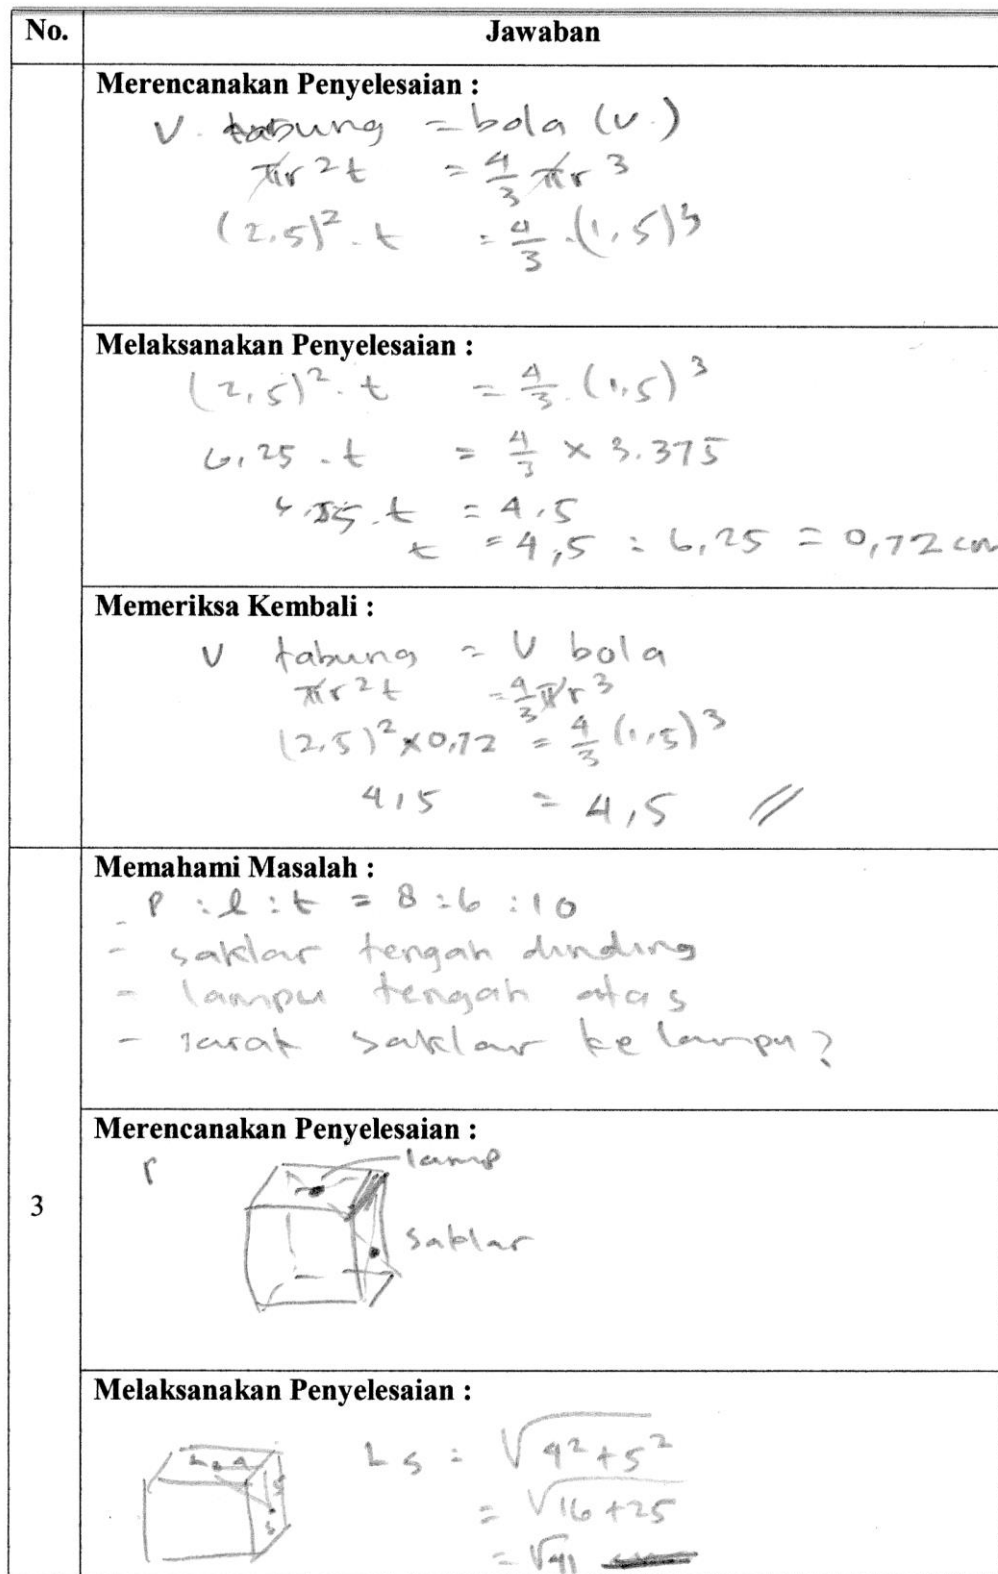 No. Jawaban
Merencanakan Penyelesaian :
V. tabung = bola (v.)
πr²t = 4/3 πr³
(2,5)². t = 4/3 . (1,5)³
Melaksanakan Penyelesaian :
(2,5)². t = 4/3 . (1,5)³
6,25 . t = 4/3 × 3.375
. t = 4,5
t = 4,5 : 6,25 = 0,72 cm
Memeriksa Kembali :
V tabung = V bola
πr²t = 4/3 πr³
(2,5)² × 0,72 = 4/3 (1,5)³
4,5 = 4,5 //
Memahami Masalah :
- P : l : t = 8 : 6 : 10
- saklar tengah dinding
- lampu tengah atas
- jarak saklar ke lampu ?
3
Merencanakan Penyelesaian :
r
lamp
saklar
Melaksanakan Penyelesaian :
L 4
5
s
L s = √4² + 5²
= √16 + 25
= √41